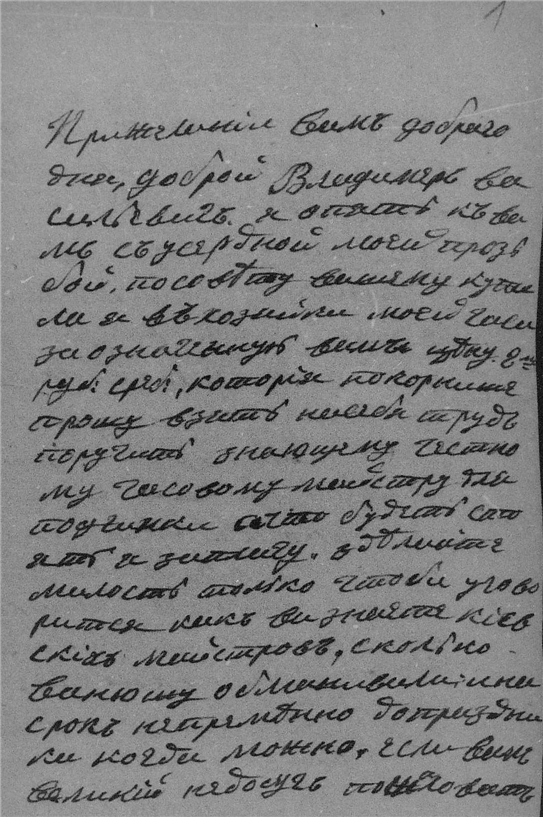 1
При желанiи вамъ добраго
дня, доброй Владимеръ ва
сильевичъ. я опять къ ва
мъ съ усердной моей прозь
бой, по совѣту вашему купи
ла я въ хозяйки моей часи
за означенную вамъ цѣну 8
руб: среб:, которiя покорнише
прошу взять на себя трудъ
поручить знающему честно
му часовому майстру для
починки что будетъ сто
ять я заплачу. здѣлайте
милость только чтоби угово
рится какъ ви знаете кiев
скихъ майстровъ, сколько
ванюшу обманивали: и на
срокъ непремѣнно до праздни
ка когда можно, если вамъ
великiй недосугъ